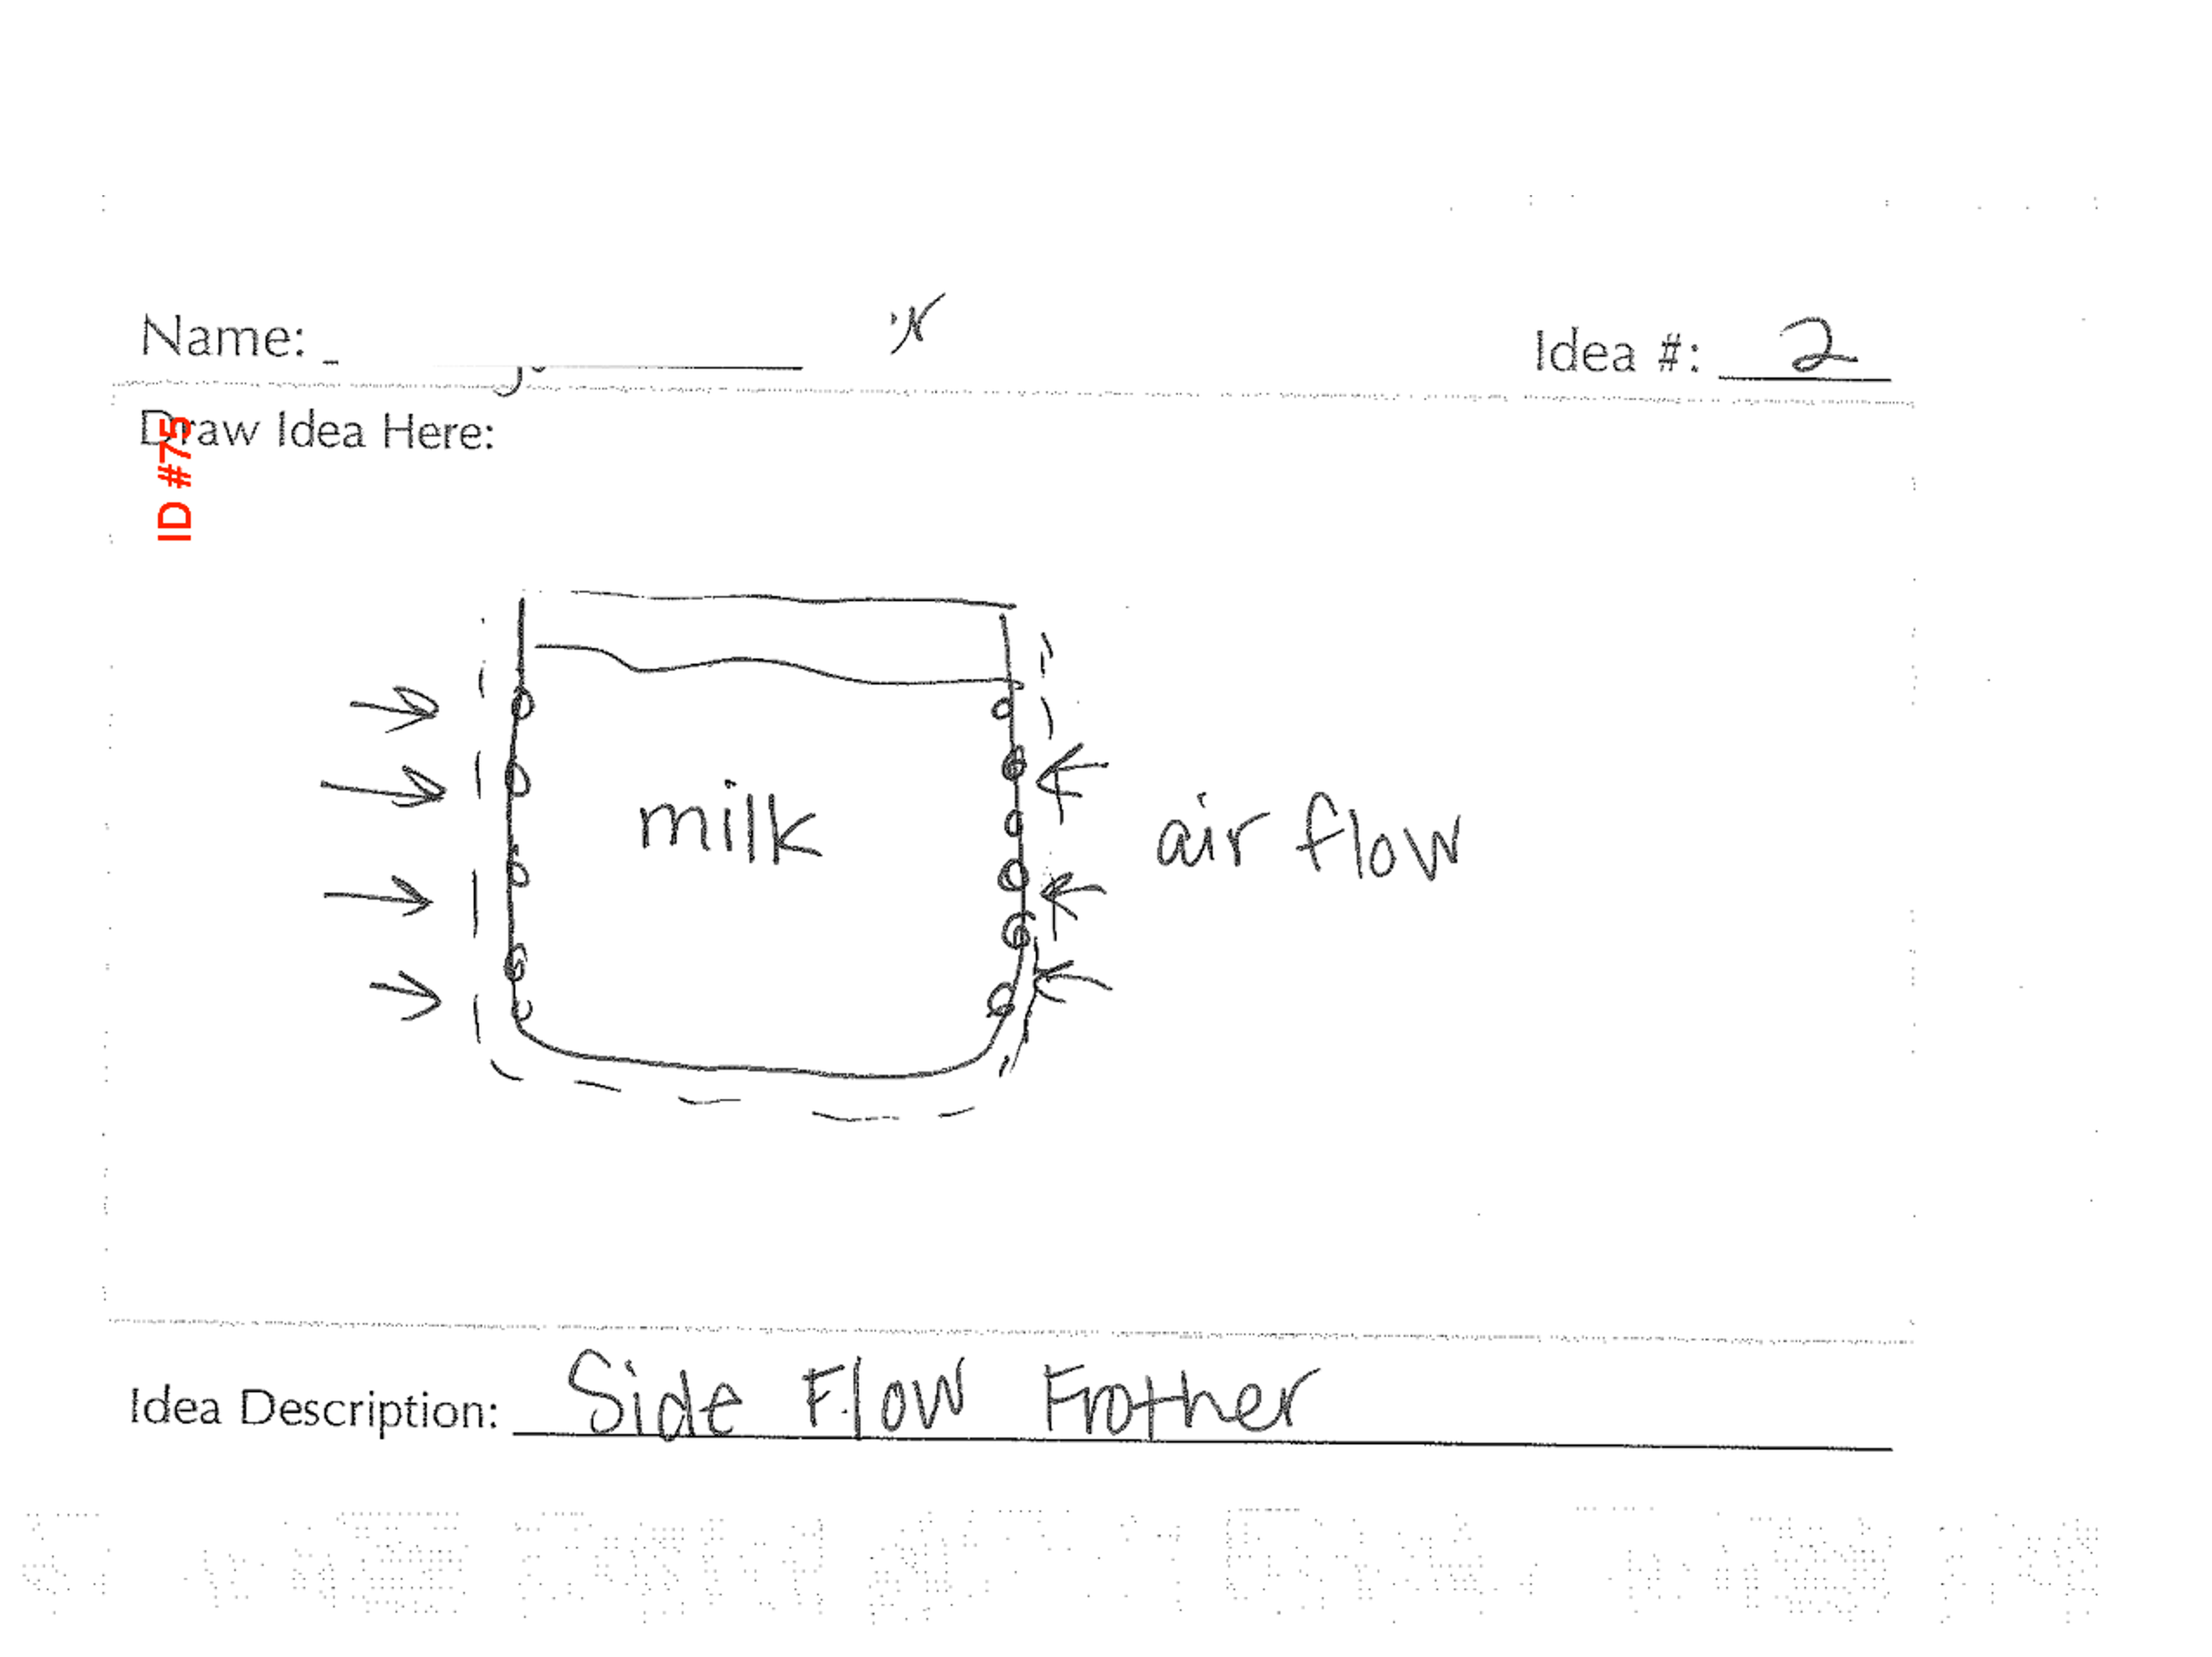 Name:
Idea #: 2
Draw Idea Here:
ID #75
milk
air flow
Idea Description: Side Flow Frother